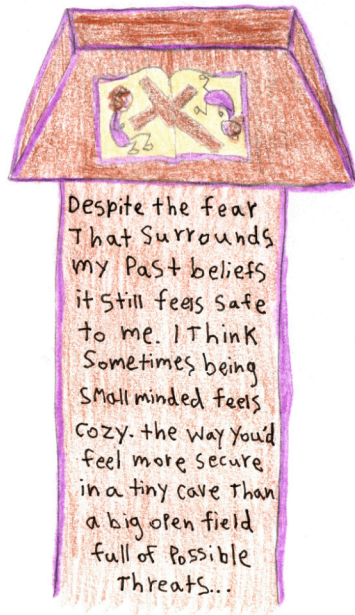 Despite the fear
That Surrounds
my Past beliefs
it Still feels Safe
to me. I Think
Sometimes being
Small minded feels
Cozy. the way you'd
feel more secure
in a tiny cave Than
a big open field
full of Possible
Threats...